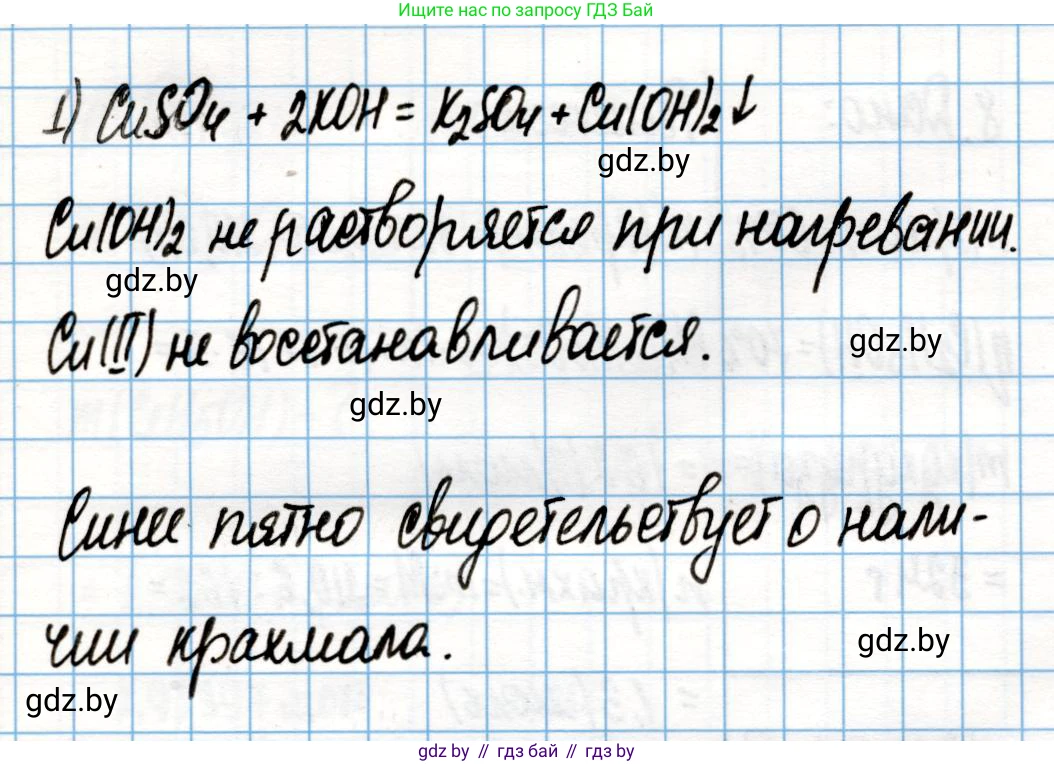 Ищите нас по запросу ГДЗ Бай
1) CuSO4 + 2KOH = K2SO4 + Cu(OH)2↓
gdz.by
Cu(OH)2 не растворяется при нагревании.
gdz.by
Cu(II) не восстанавливается.
gdz.by
gdz.by
Синее пятно свидетельствует о нали-
чии крахмала.
gdz.by
gdz.by
gdz by // гдз бай // гдз by